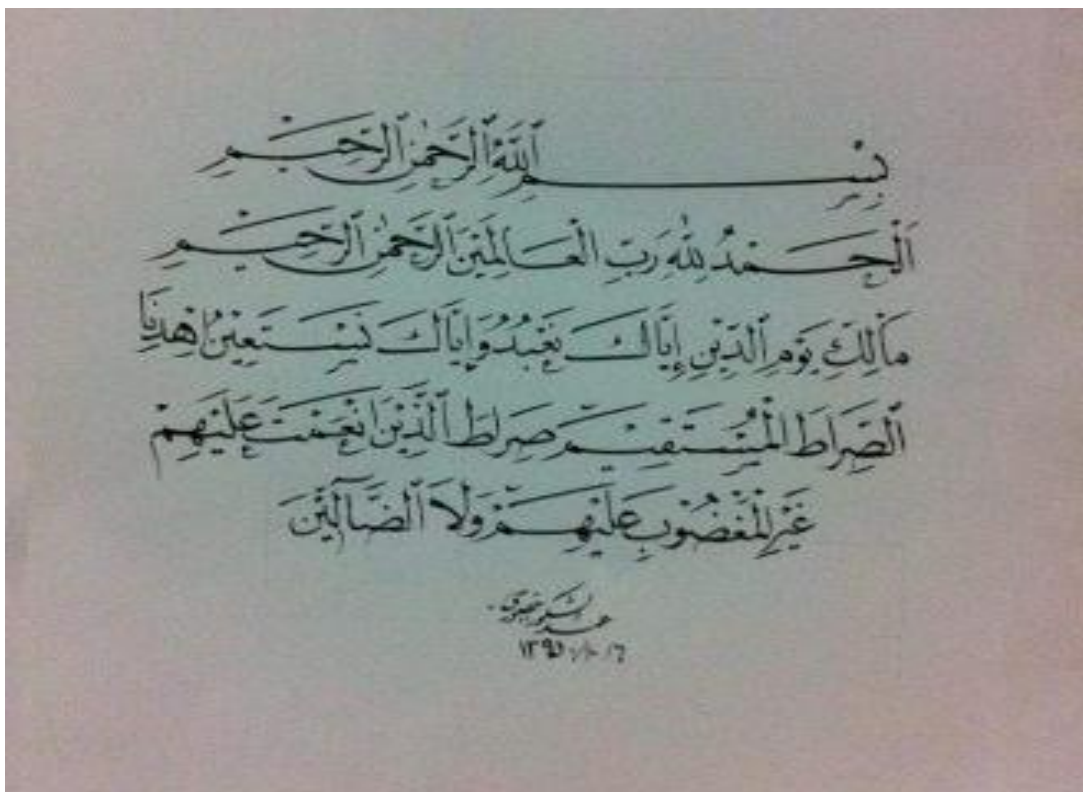 بِسْمِ ٱللهِ ٱلرَّحْمٰنِ ٱلرَّحِيْمِ
اَلْحَمْدُ لِلّٰهِ رَبِّ الْعَالَمِيْنَ ٱلرَّحْمٰنِ ٱلرَّحِيْمِ
مَالِكِ يَوْمِ ٱلدِّيْنِ إِيَّاكَ نَعْبُدُ وَإِيَّاكَ نَسْتَعِيْنُ اِهْدِنَا
ٱلصِّرَاطَ الْمُسْتَقِيْمَ صِرَاطَ ٱلَّذِيْنَ اَنْعَمْتَ عَلَيْهِمْ
غَيْرِ الْمَغْضُوْبِ عَلَيْهِمْ وَلَا ٱلضَّآلِّيْنَ